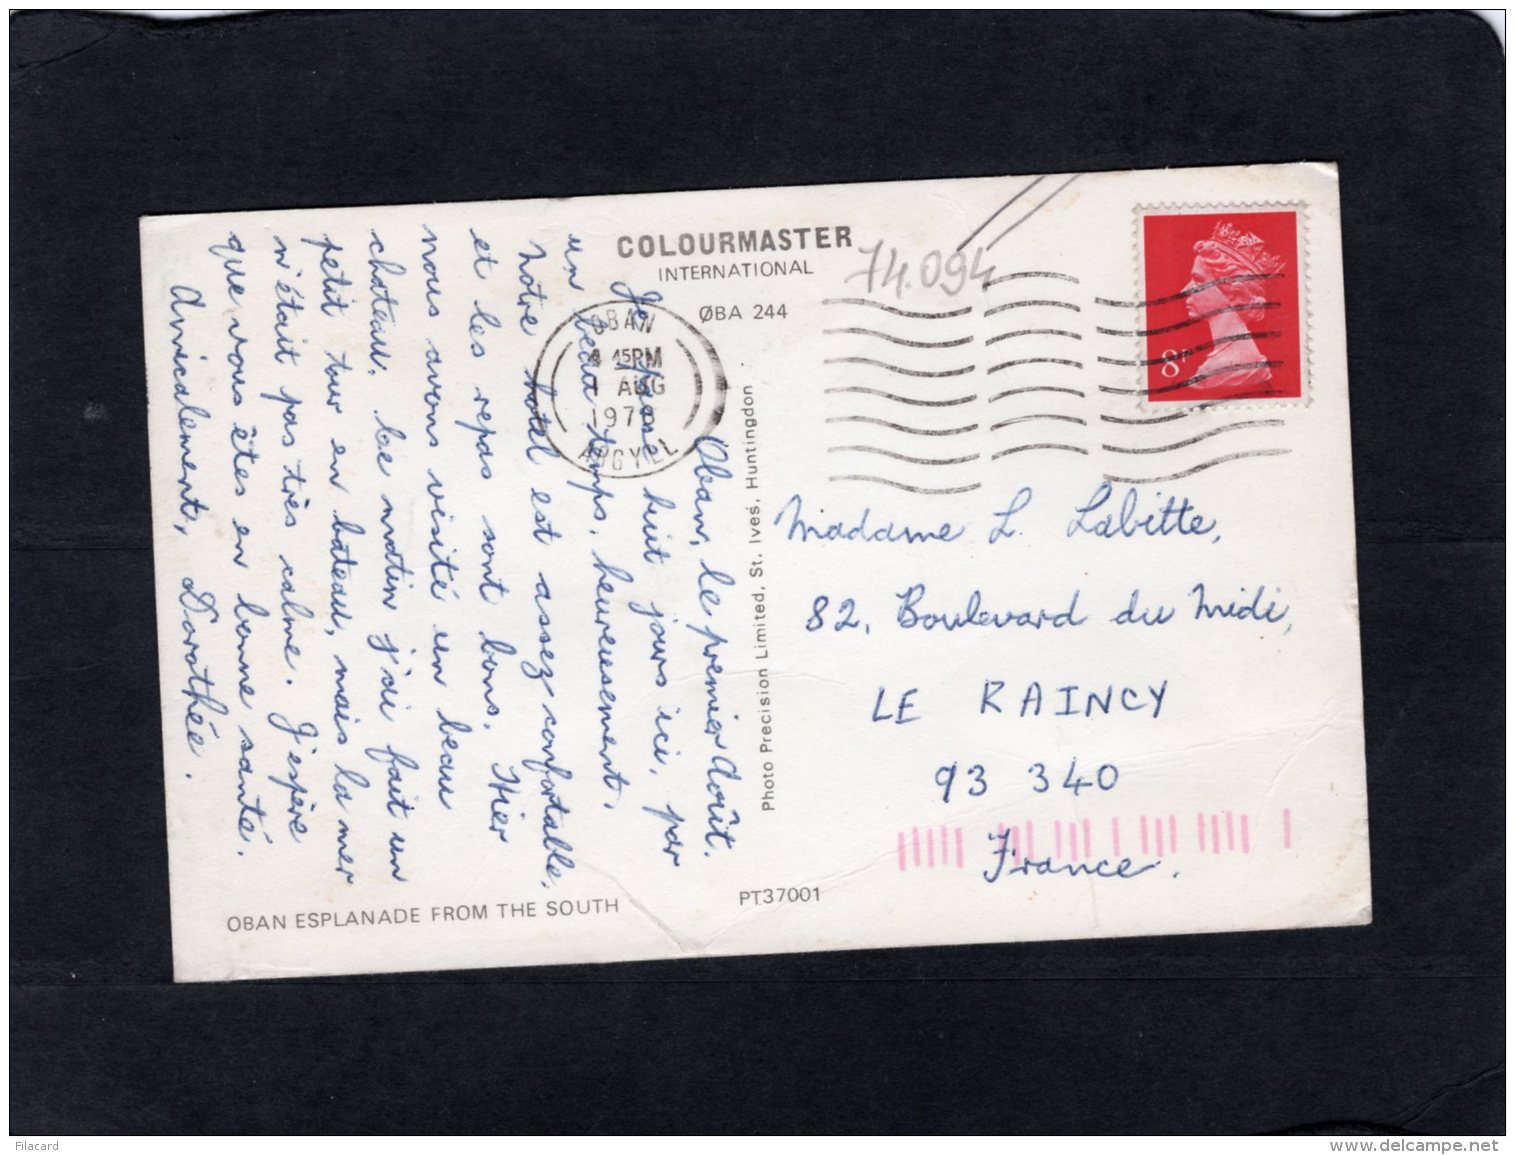 COLOURMASTER
INTERNATIONAL
ØBA 244
74.094
OBAN
4 45PM
1 AUG
197
ARGYLL
8P
Oban, le premier Août.
Je passe huit jours ici, par
un beau temps, heureusement.
Notre hotel est assez confortable,
et les repas sont bons. Hier
nous avons visité un beau
chateau. Ce matin j'ai fait un
petit tour en bateau, mais la mer
n'était pas très calme. J'espère
que vous êtes en bonne santé.
Amicalement, Dorothée.
Photo Precision Limited, St. Ives, Huntingdon
Madame L. Labitte,
82, Boulevard du Midi,
LE RAINCY
93 340
France.
OBAN ESPLANADE FROM THE SOUTH
PT37001
Filacard
www.delcampe.net